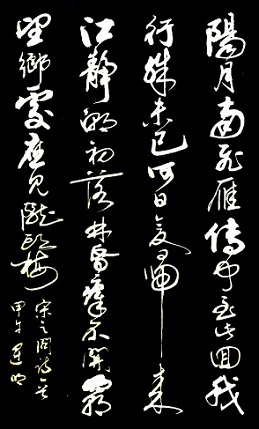 陽月南飛雁傳聞至此回我
行殊未已何日復歸來
江靜潮初落林昏瘴不開明朝
望鄉處應見隴頭梅
宋之問詩
甲午